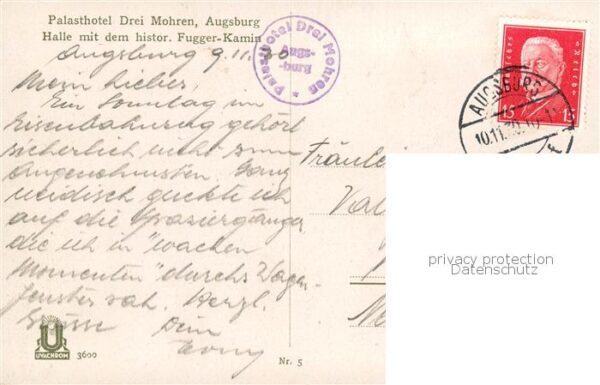 Palasthotel Drei Mohren, Augsburg
Halle mit dem histor. Fugger-Kamin
Palasthotel Drei Mohren
Augs-
-burg
Deutsches Reich
15 15
AUGSBURG
10.11.30.10-11
Augsburg 9.11.30
Mein Lieber,
Ein Sonntag im
Eisenbahnzug gehört
sicherlich nicht zum
Angenehmsten. Ganz
neidisch guckte ich
auf die Spaziergänger
die ich in "wachen
Momenten" durchs Wagen-
fenster sah. Herzl.
Grüsse Dein
Fräulein
privacy protection
Datenschutz
U
UVACHROM
3600
Nr. 5